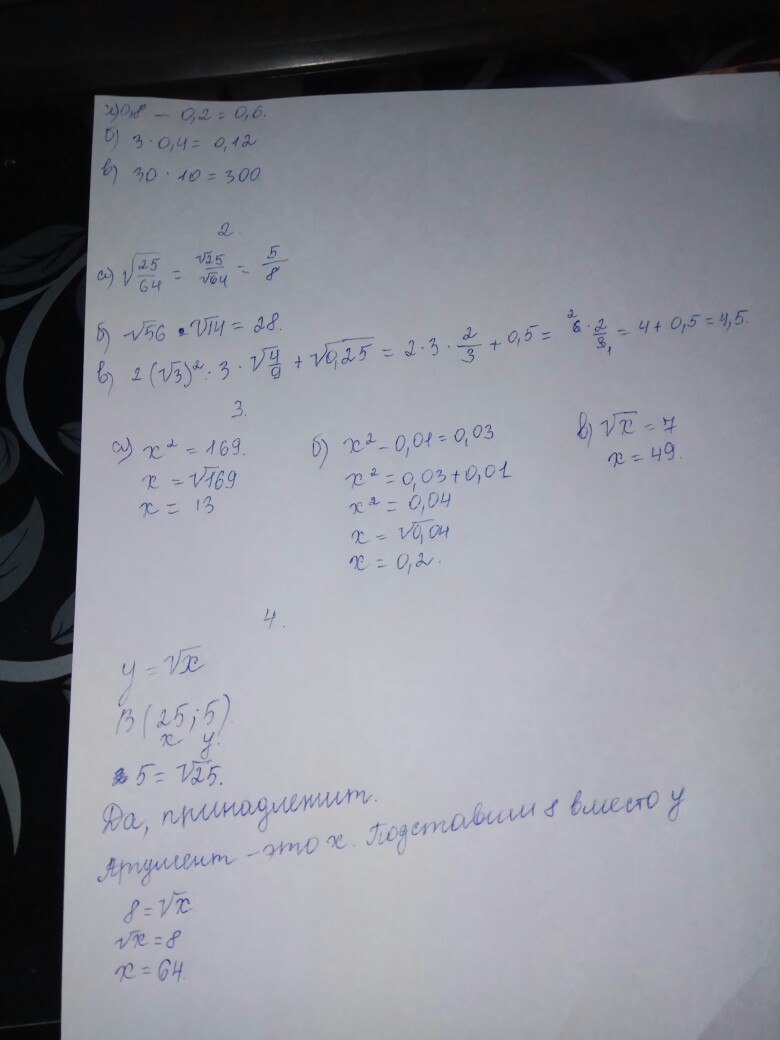 а) 0,8 - 0,2 = 0,6.
б) 3 · 0,4 = 0,12
в) 30 · 10 = 300.
2.
а) √25/64 = √25/√64 = 5/8
б) √56 · √14 = 28.
в) 2(√3)² : 3 · √4/9 + √0,25 = 2·3· 2/3 + 0,5 = 6 · 2/3 = 4 + 0,5 = 4,5.
3.
а) x² = 169.
x = √169
x = 13
б) x² - 0,01 = 0,03
x² = 0,03 + 0,01
x² = 0,04
x = √0,04
x = 0,2.
в) √x = 7
x = 49.
4.
y = √x
B (25; 5).
x y.
5 = √25.
Да, принадлежит.
Аргумент - это x. Подставим 8 вместо y
8 = √x.
√x = 8
x = 64.